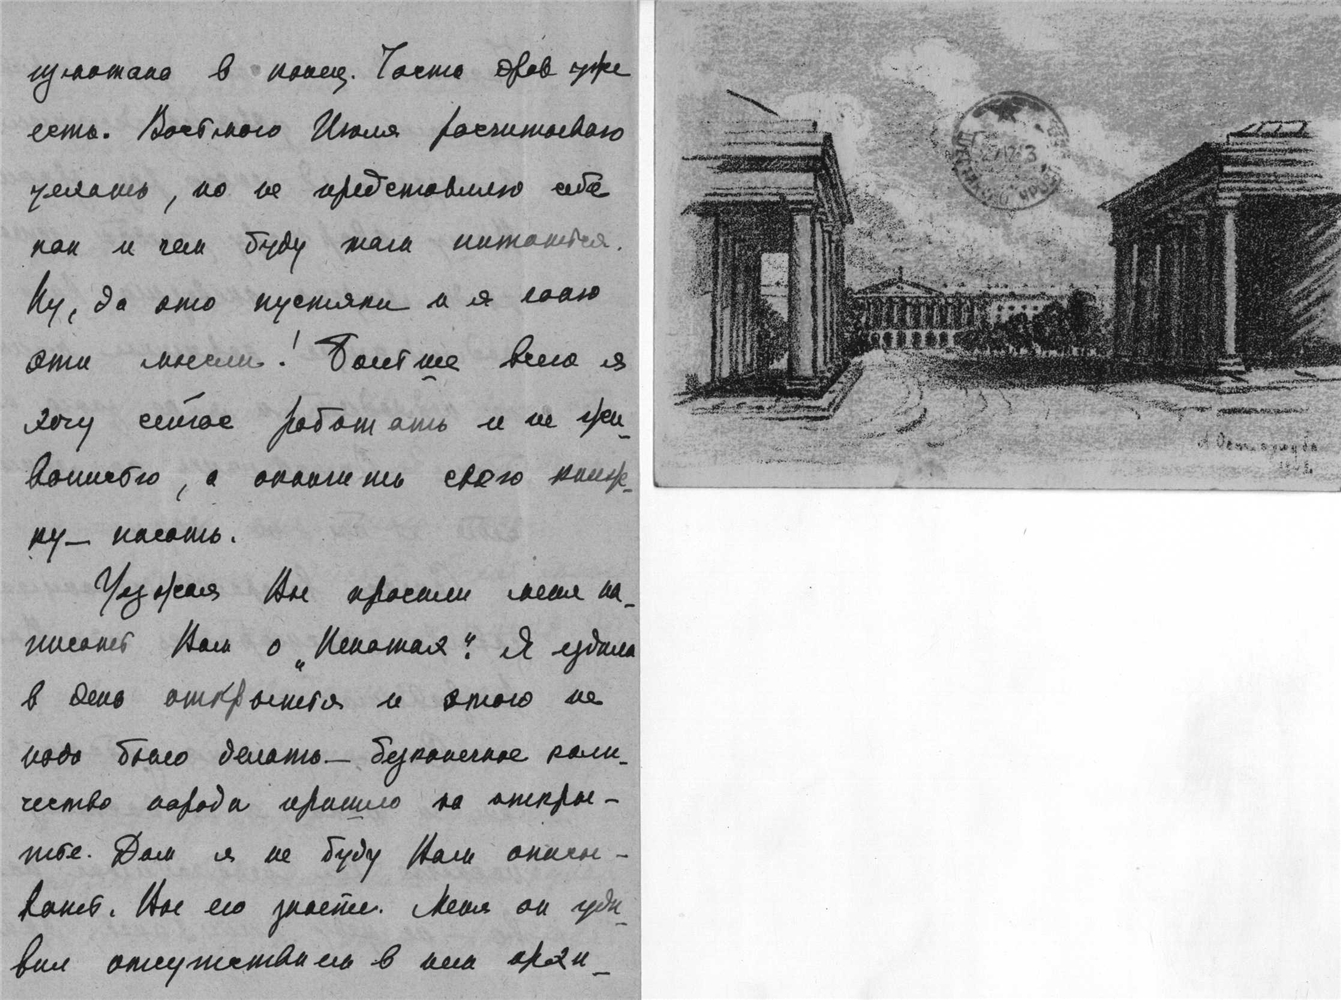 в конец. Часть дров уже
есть. Восьмого Июля рассчитываю
уехать, но не представляю себе
как и чем буду там питаться.
Ну, да это пустяки и я гоню
эти мысли! Больше всего я
хочу сейчас работать и не жи-
вописью, а окончить свою книж-
ку — писать.
Уезжая Вы просили меня на-
писать Вам о „Пенатах“? Я ездила
в день открытия и этого не
надо было делать — бесконечное коли-
чество народа пришло на откры-
тье. Дом я не буду Вам описы-
вать. Вы его знаете. Меня он уди-
вил отсутствием в нем